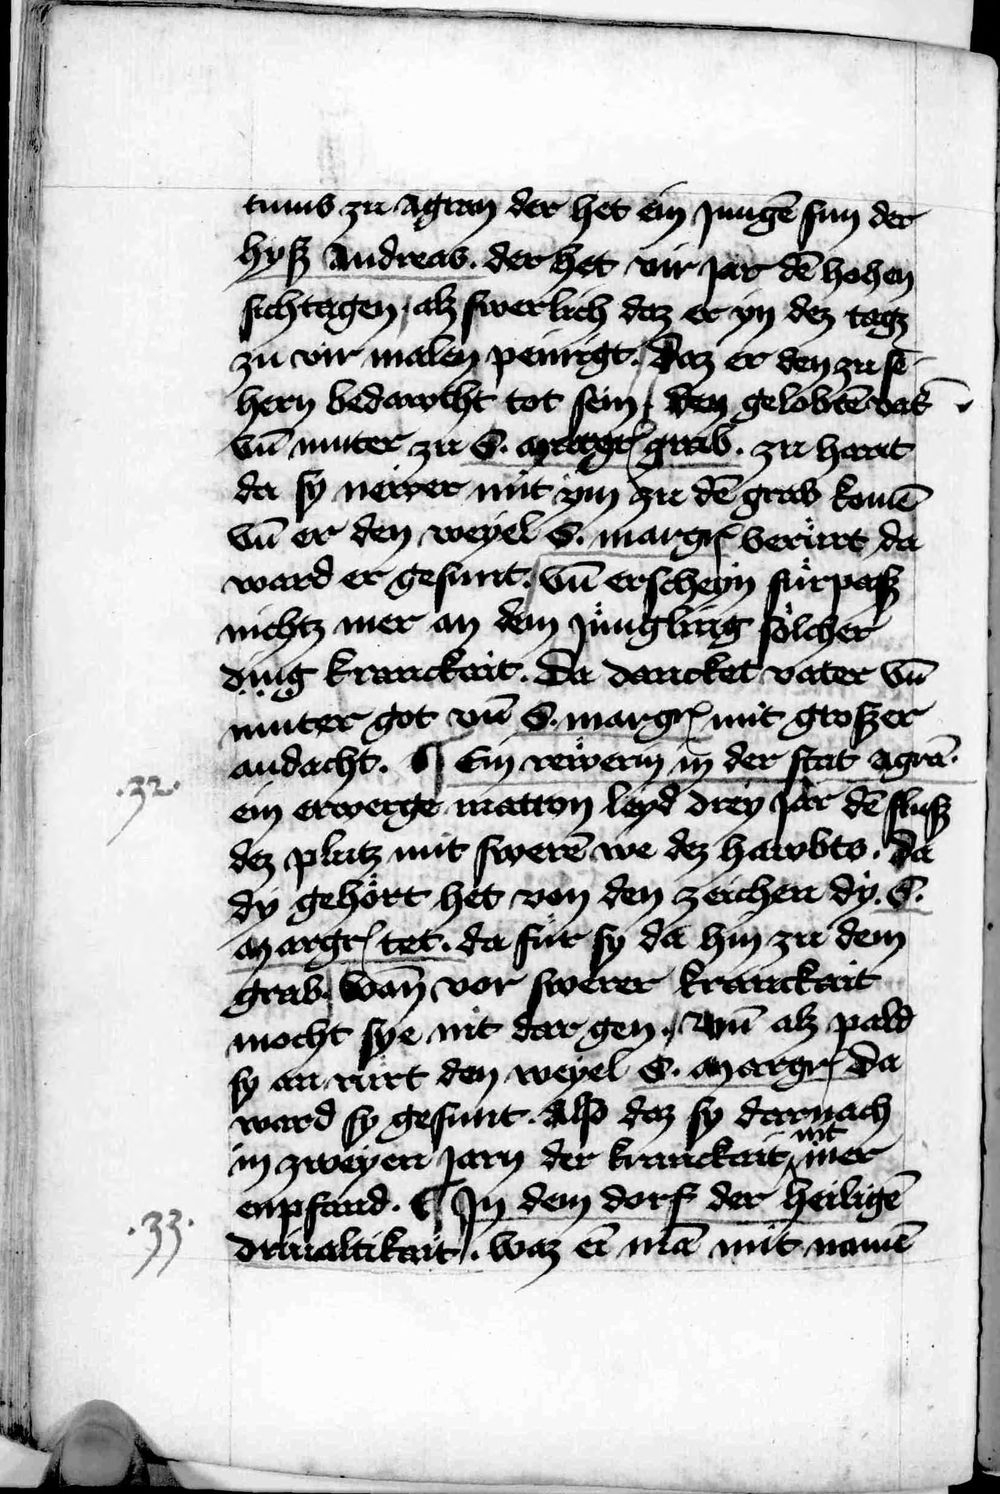 tums zu Agran der het ein Jungē sun der
hyß Andreas. der het vir Jar dē hohen
sichtagen, alz swerlich daz er yn dez tagz
zu vir malen peinigt. Daz er den zu se-
hern bedawcht tot sein, den gelobtē vat
vn̄ muter zu S. margr grab. zu hant
da sy newer mit ym zu dē grab komē
vn̄ er den weyel S. margr berürt da
ward er gesunt. vn̄ erscheyn fürpaß
nichtz mer an dem Jüngling sölcher
ding kranckait. Da dancket vater vn̄
muter got vn̄ S. margr mit großer
andacht. ¶ Ein rewerin in der stat Agrā.
.32.
ein erwerge matron leyd drey Jar dē fluß
dez plutz mit swerē we dez hawbts. Da
dy gehört het von den zeichen dy. S.
margr tet. da für sy da hin zu dem
grab. wan̄ vor swerer kranckait
mocht sye nit dar gen. vnn̄ alz pald
sy an rürt den weyel S. margr da
ward sy gesunt. Also daz sy darnach
in zweyen Jarn der kranckait nit mer
enpfand. ¶ In dem dorf der heiligē
.33.
driualtikait. waz eī mā mit namē